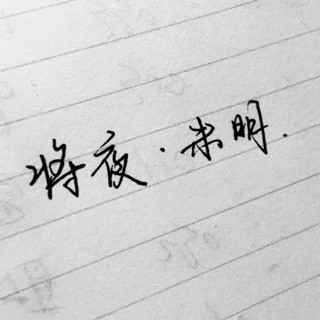 将夜·未明.